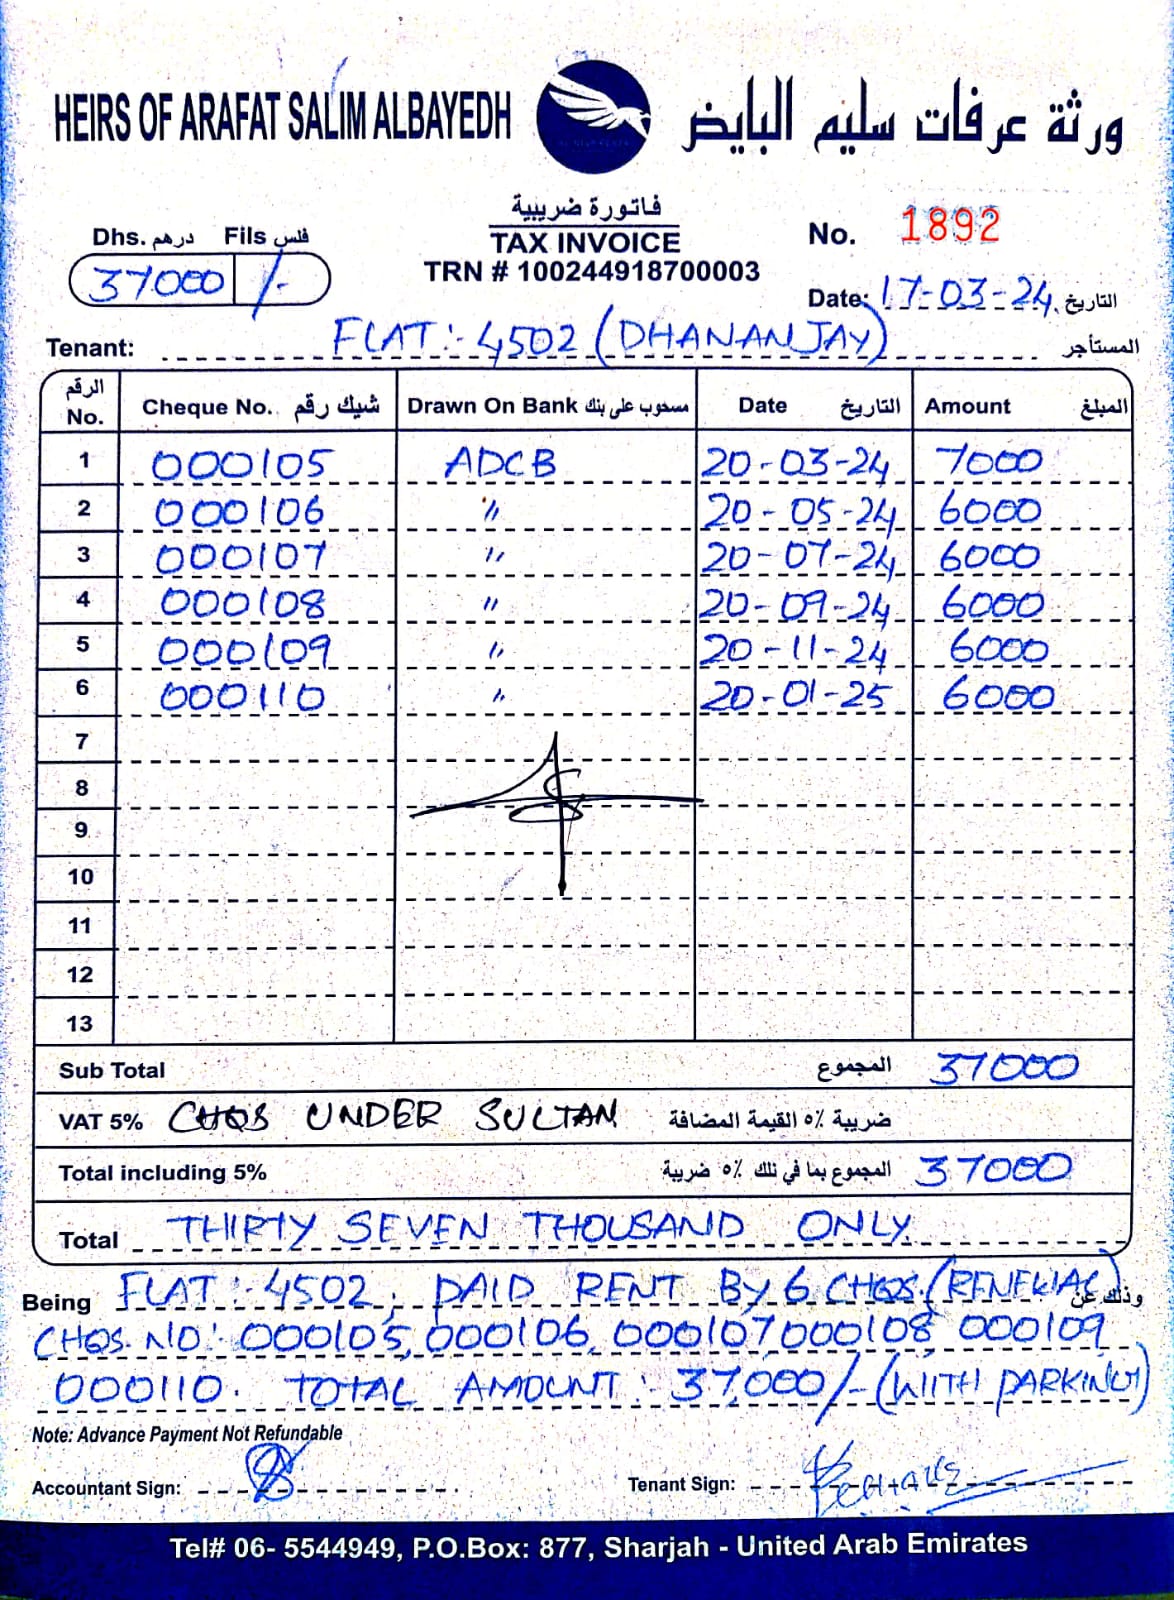 HEIRS OF ARAFAT SALIM ALBAYEDH
ورثة عرفات سليم البايض
فاتورة ضريبية
TAX INVOICE
TRN # 100244918700003
Dhs. درهم Fils فلس
37000 /-
No. 1892
Date: 17-03-24 التاريخ
Tenant: FLAT:- 4502 (DHANANJAY) المستأجر
الرقم No. Cheque No. شيك رقم Drawn On Bank مسحوب على بنك Date التاريخ Amount المبلغ
1 000105 ADCB 20-03-24 7000
2 000106 " 20-05-24 6000
3 000107 " 20-07-24 6000
4 000108 " 20-09-24 6000
5 000109 " 20-11-24 6000
6 000110 " 20-01-25 6000
7
8
9
10
11
12
13
Sub Total المجموع 37000
VAT 5% CHQS UNDER SULTAN ضريبة ٥٪ القيمة المضافة
Total including 5% المجموع بما في ذلك ٥٪ ضريبة 37000
Total THIRTY SEVEN THOUSAND ONLY
Being FLAT:- 4502, PAID RENT BY 6 CHQS (RENEWAL) وذلك عن
CHQS. NO: 000105, 000106, 000107, 000108, 000109
000110. TOTAL AMOUNT:- 37,000/- (WITH PARKING)
Note: Advance Payment Not Refundable
Accountant Sign:
Tenant Sign:
Tel# 06- 5544949, P.O.Box: 877, Sharjah - United Arab Emirates